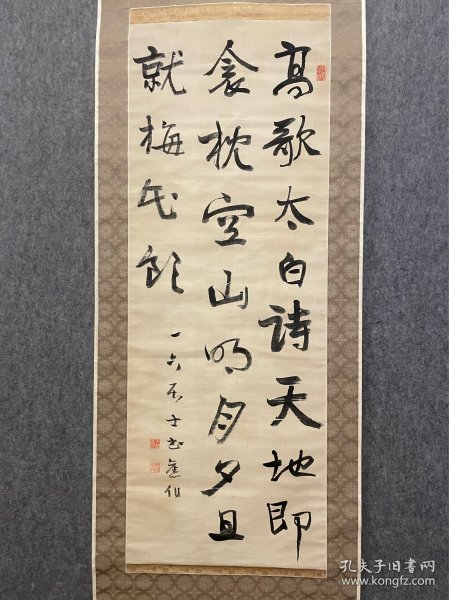 高歌太白詩天地即
衾枕空山明月夕且
就梅花飲
一六居士書舊作
孔夫子旧书网
www.kongfz.com